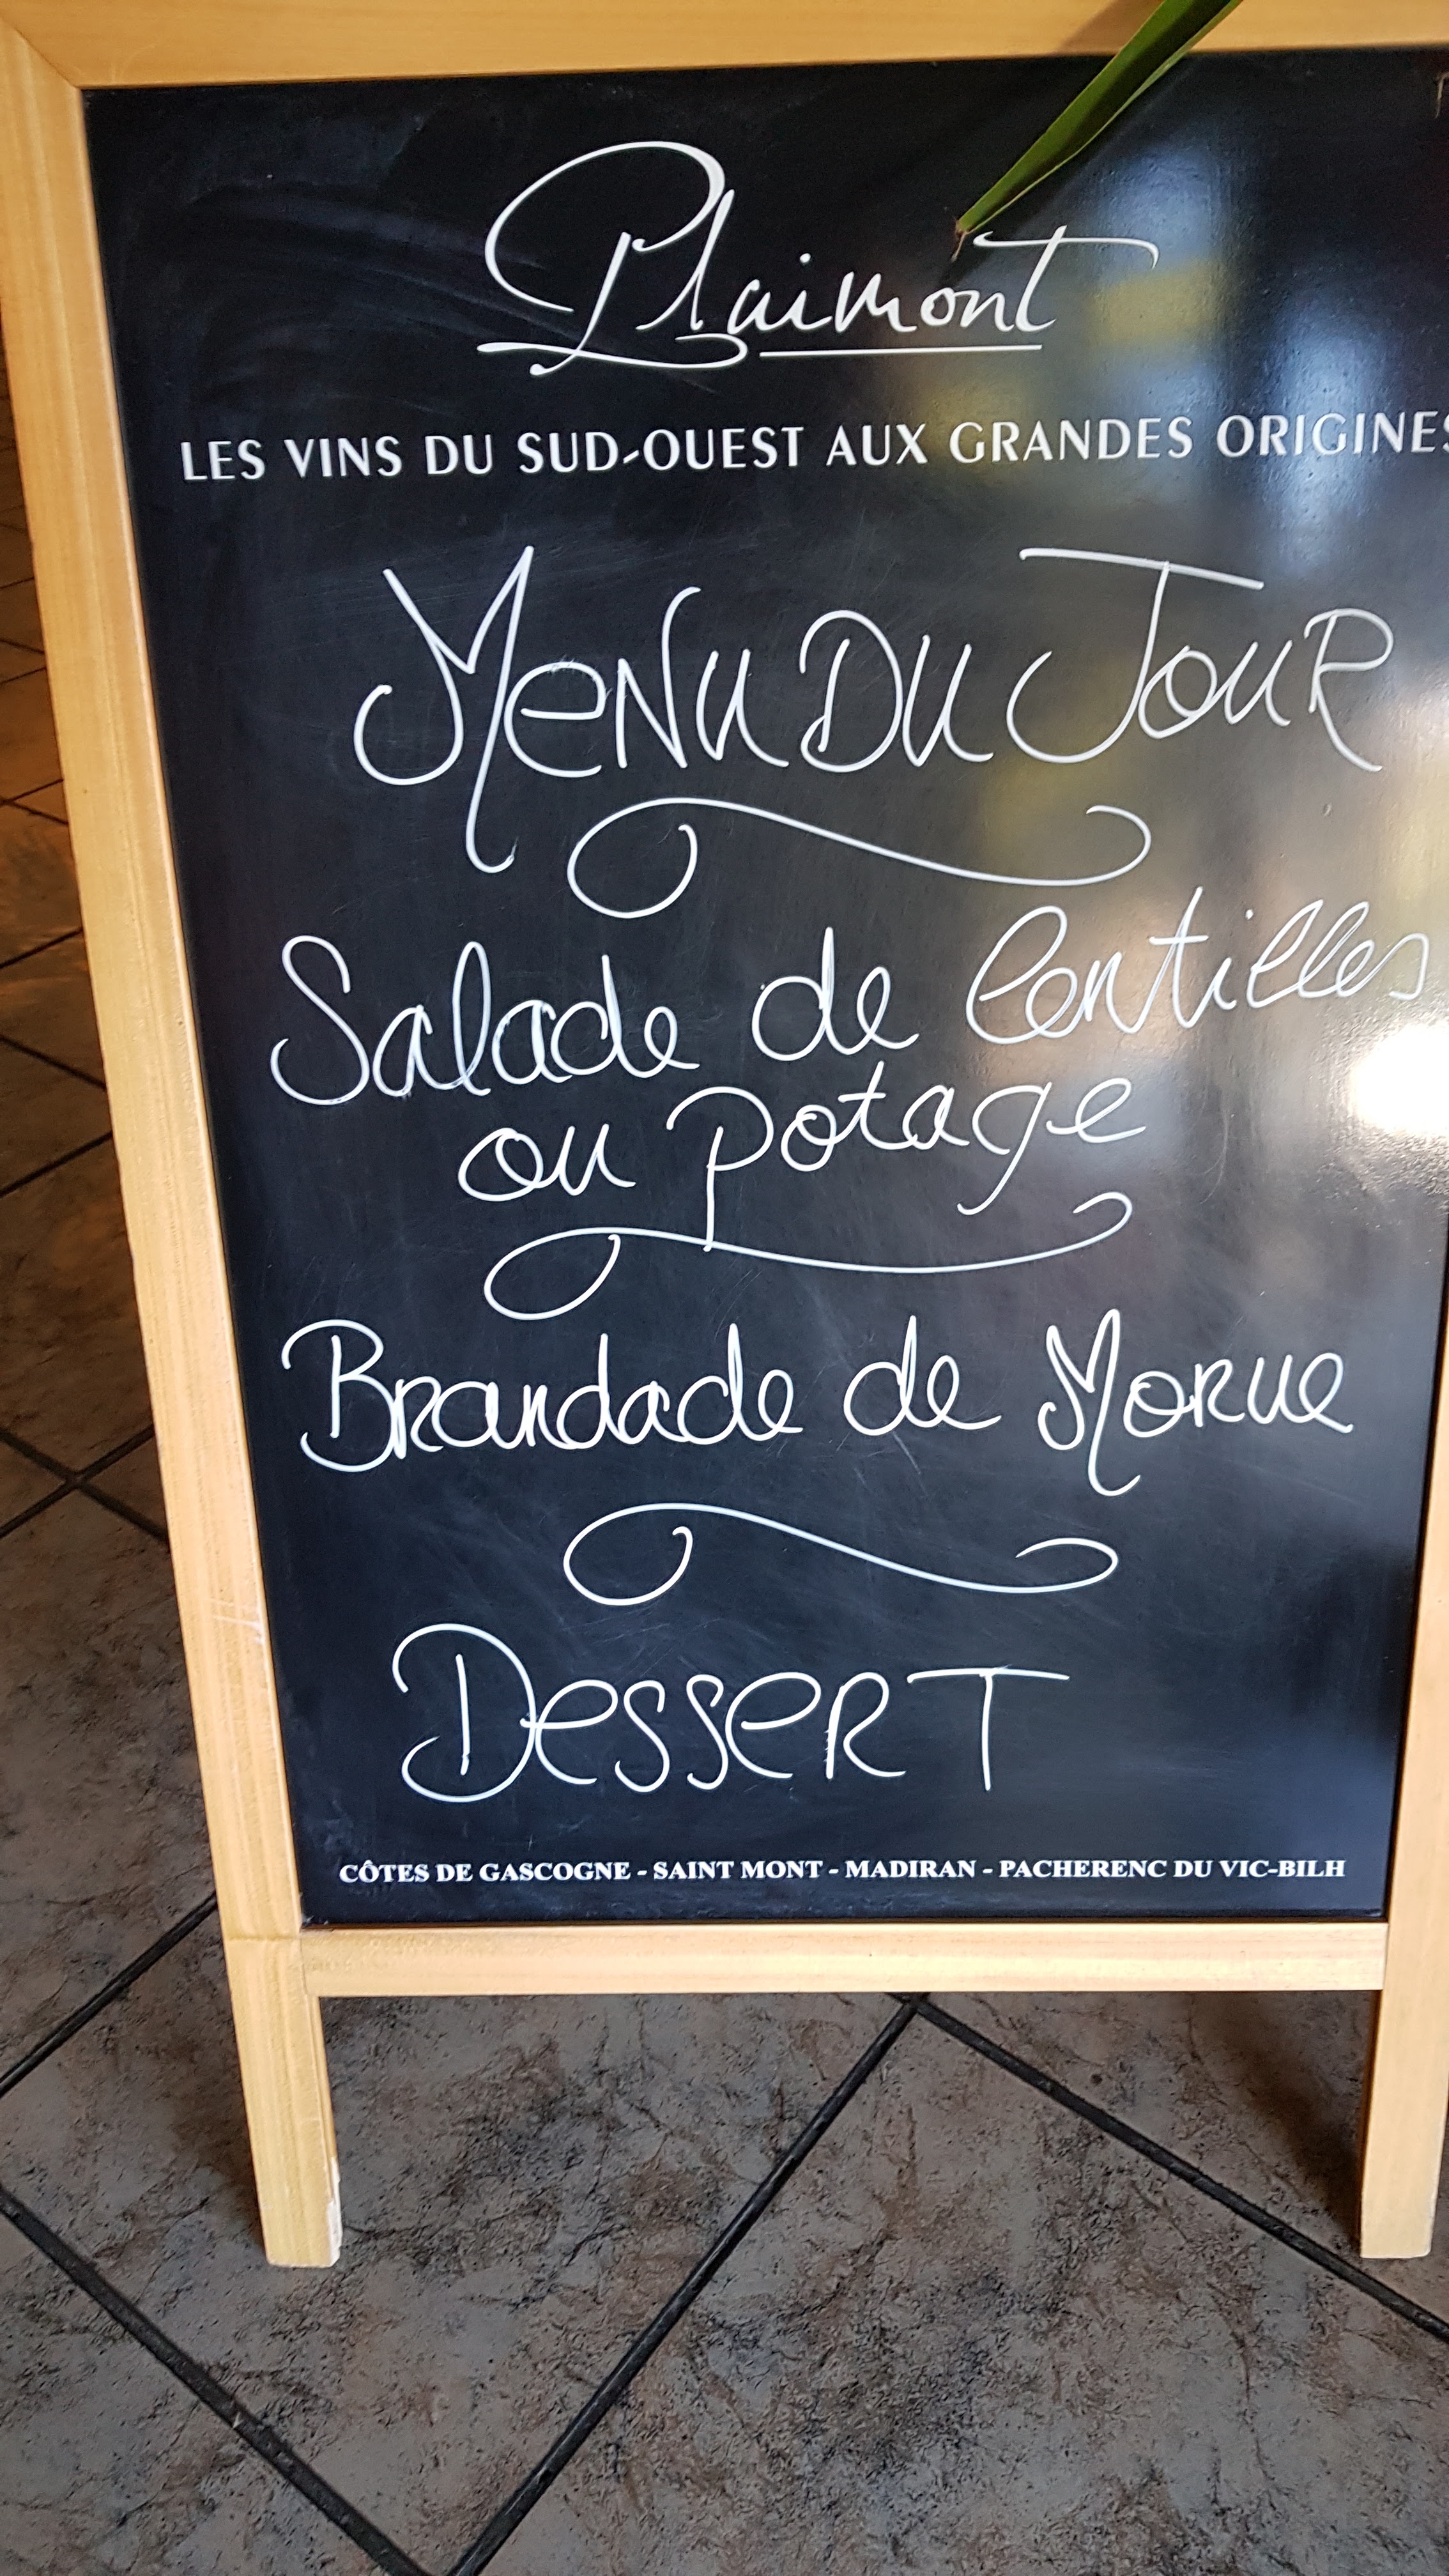 Plaimont
LES VINS DU SUD-OUEST AUX GRANDES ORIGINES
Menu Du Jour
Salade de lentilles
ou potage
Brandade de Morue
Dessert
CÔTES DE GASCOGNE - SAINT MONT - MADIRAN - PACHERENC DU VIC-BILH